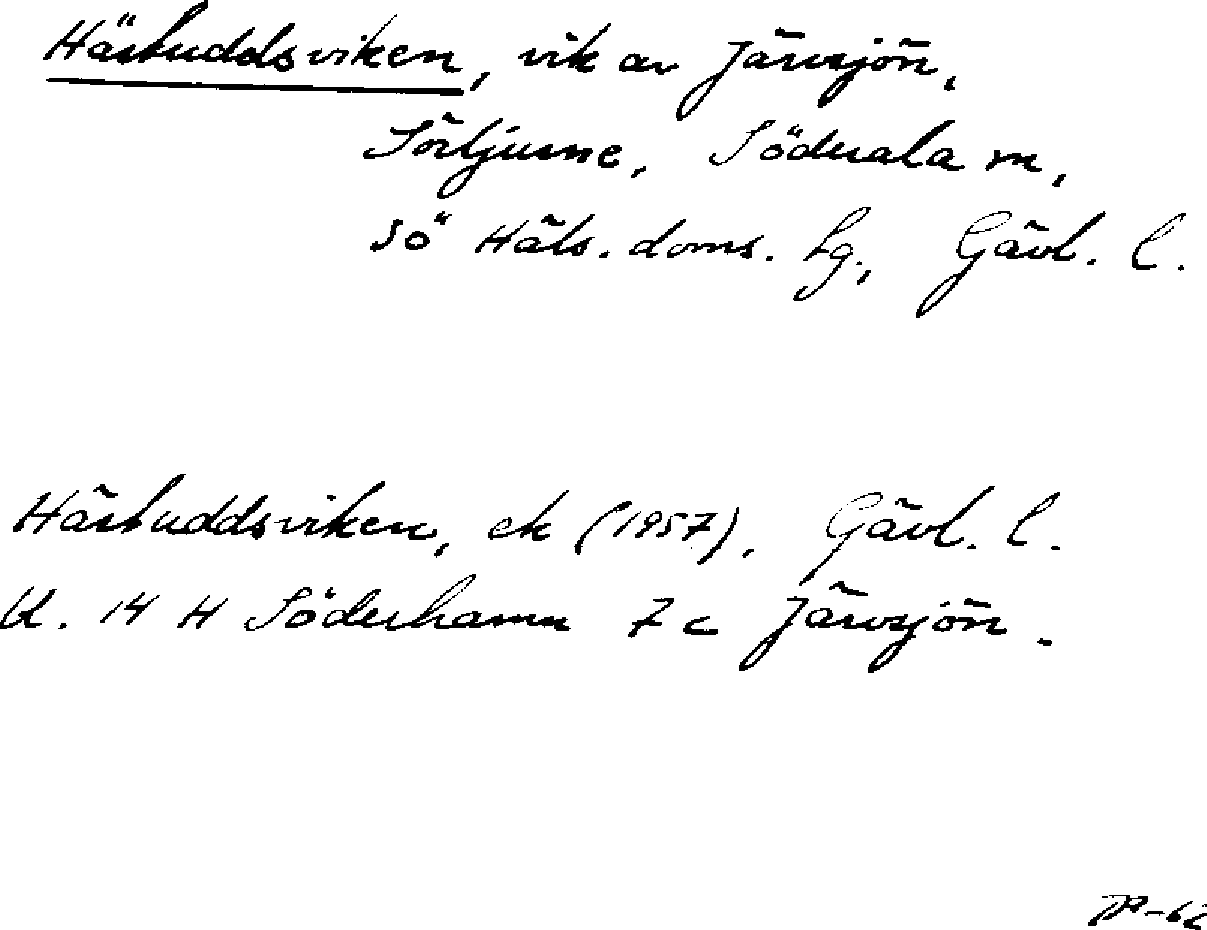 Hästuddsviken, vik av Järvsjön,
Sörljusne, Söderala sn,
sö Häls. doms. tg., Gävl. l.
Hästuddsviken, ek (1957), Gävl. l.
bl. 14 H Söderhamn 7 c Järvsjön.